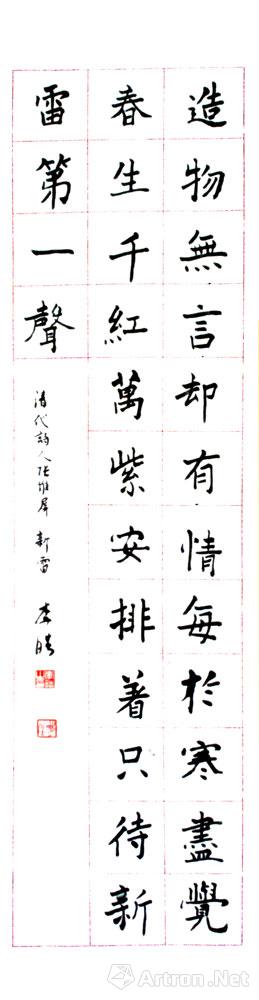 造物無言却有情每於寒盡覺
春生千紅萬紫安排着只待新
雷第一聲
清代詩人張維屏 新雷 李晧
Artron.Net